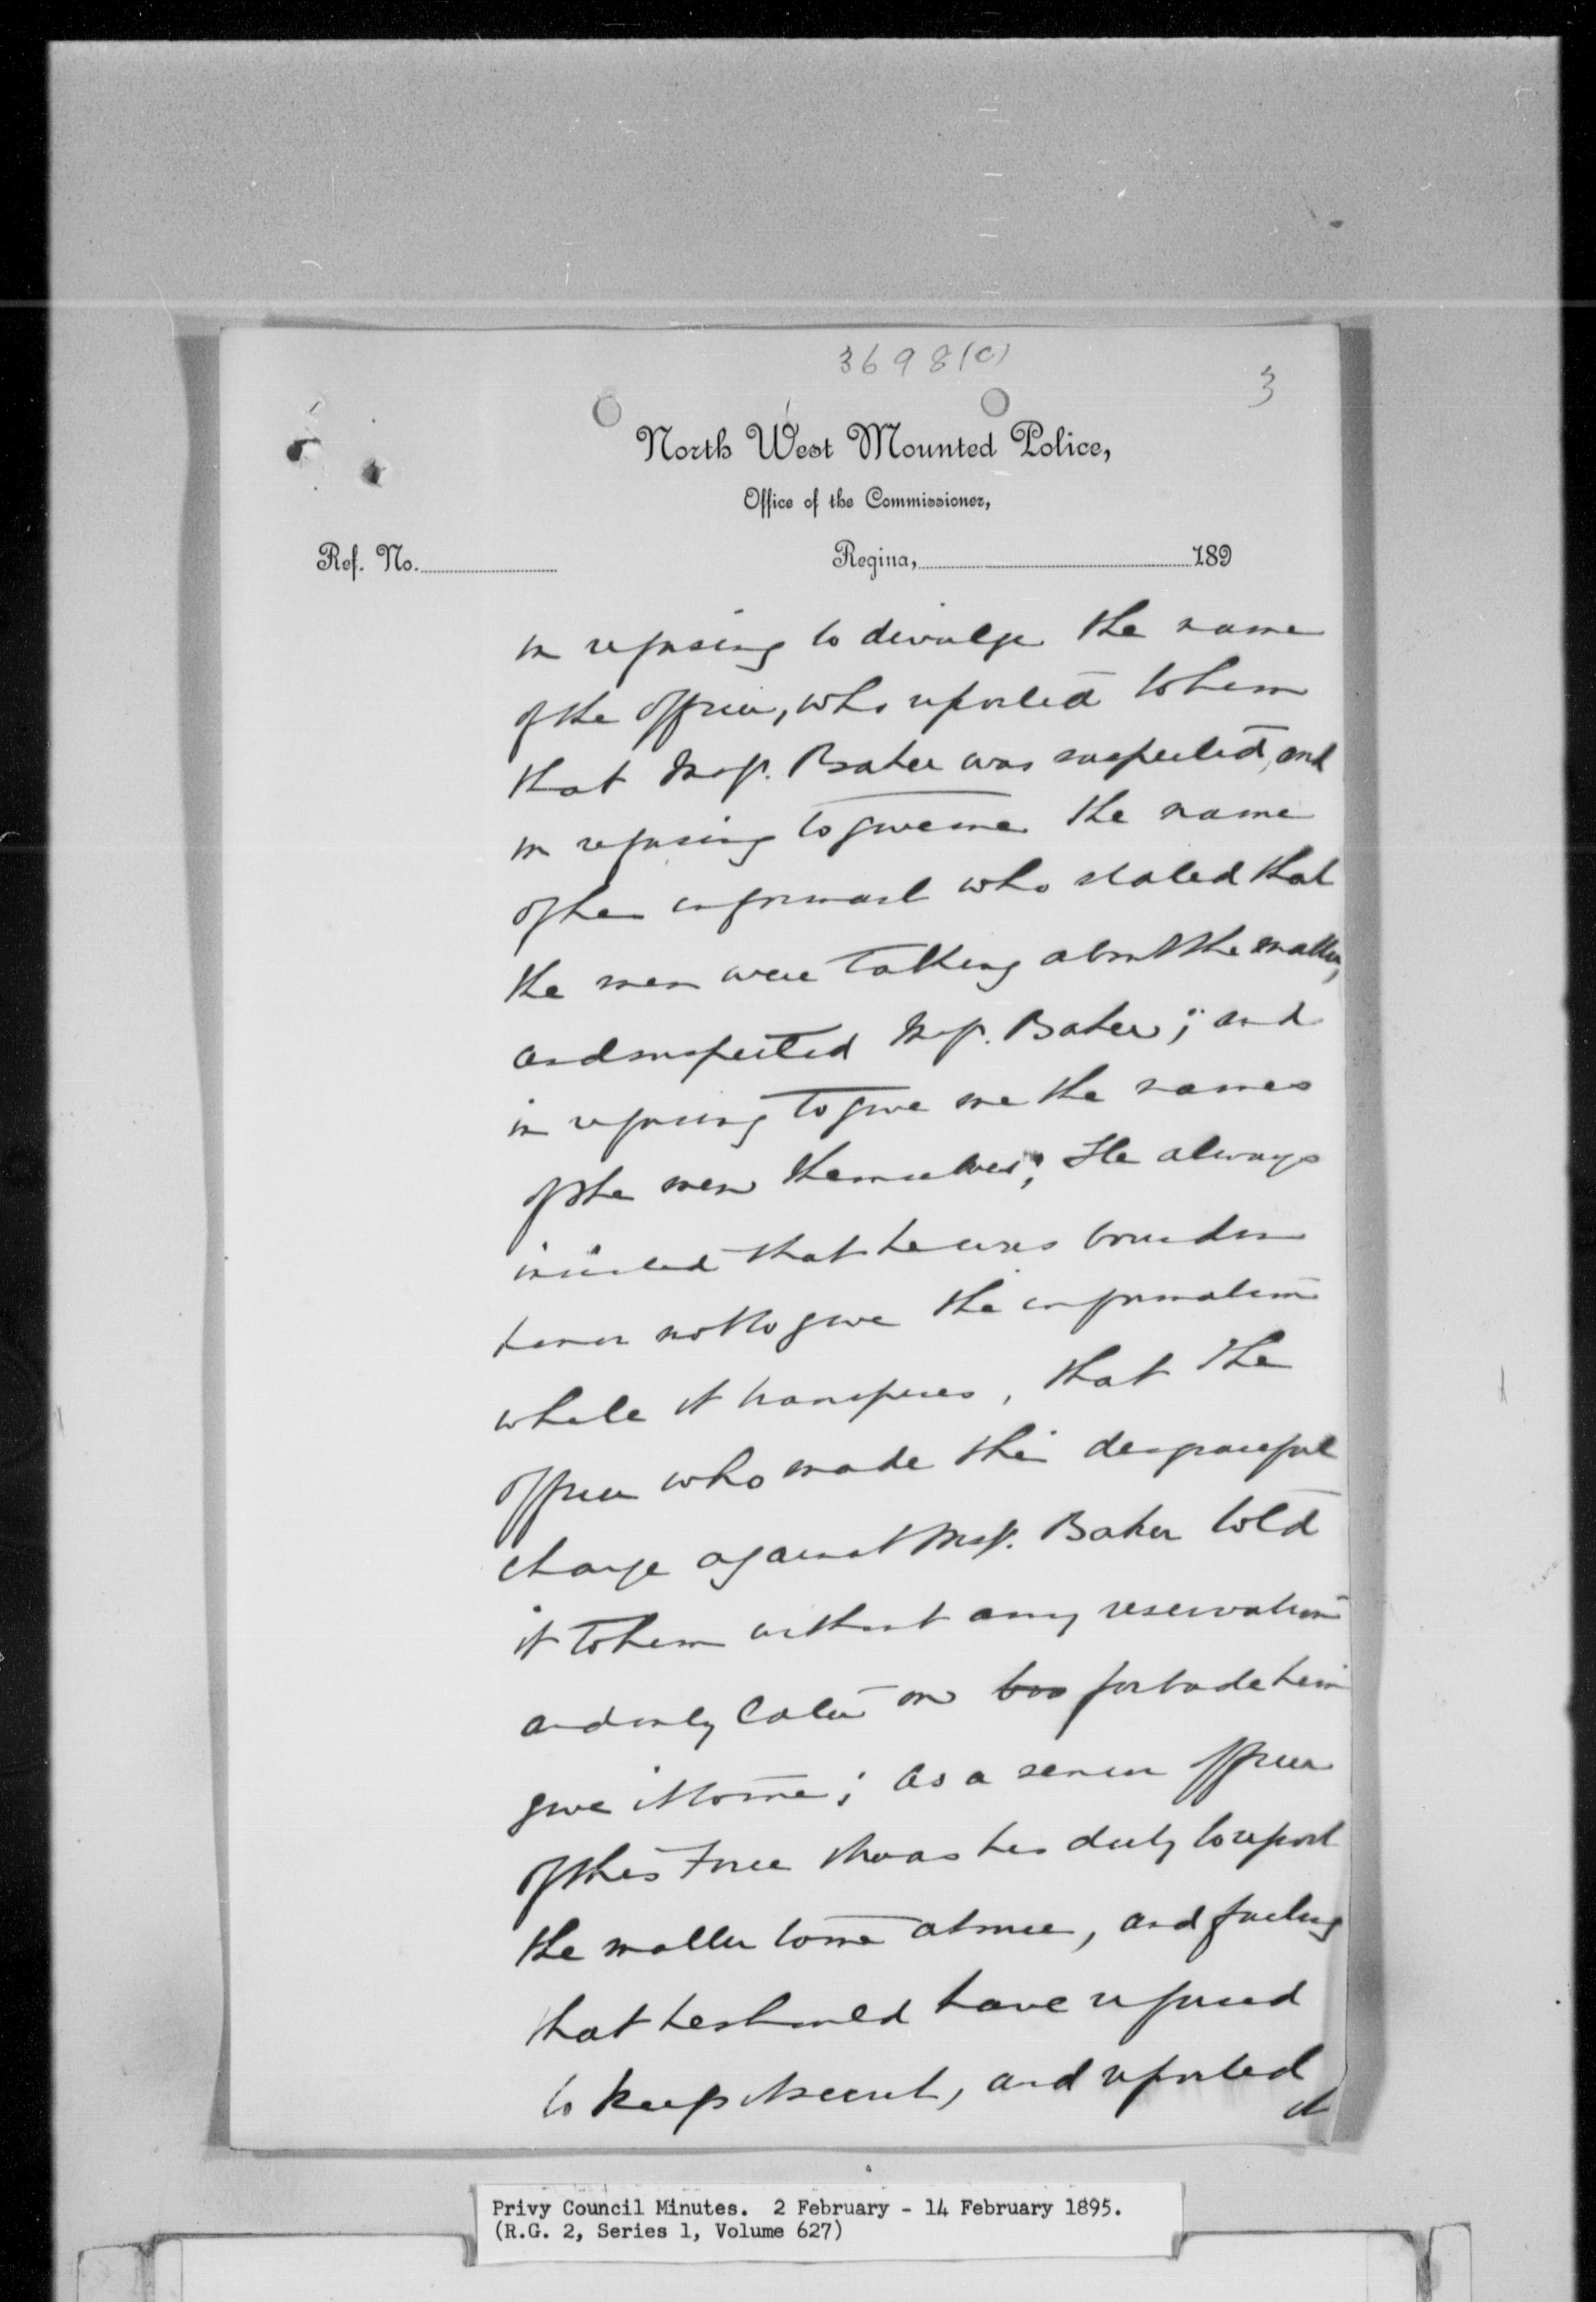 3698(c)
3
North West Mounted Police,
Office of the Commissioner,
Ref. No. Regina, 189
in refusing to divulge the name
of the officer, who reported to him
that Insp. Baker was suspected, and
in refusing to give me the name
of his informant who stated that
the men were talking about the matter,
and suspected Insp. Baker; and
in refusing to give me the names
of the men themselves; He always
insisted that he was bound in
honor not to give the information
while it transpires, that the
officer who made this disgraceful
charge against Insp. Baker told
it to him without any reservation
and only later on forbade him
give it to me; as a senior officer
of this Force it was his duty to report
the matter to me at once, and failing
that he should have refused
to keep it secret, and reported
it
Privy Council Minutes. 2 February - 14 February 1895.
(R.G. 2, Series 1, Volume 627)